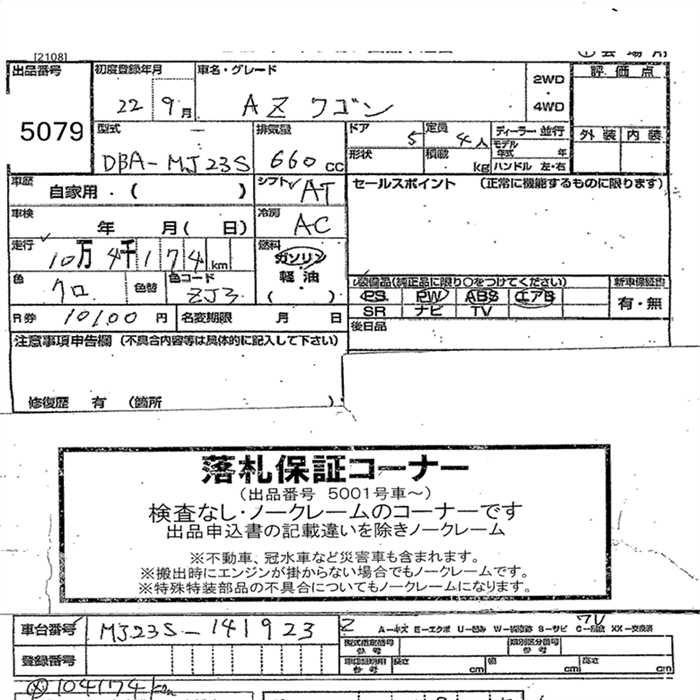 [2108]
出品番号 初度登録年月 車名・グレード 評価点
22 9月 AZワゴン 2WD・4WD
5079 外装 内装
型式 排気量 ドア 定員 ディーラー・並行
DBA-MJ23S 660cc 5 4人 モデル年式 年
形状 積載 kg ハンドル 左・右
車歴 自家用・( ) シフト AT セールスポイント (正常に機能するものに限ります)
車検 年 月( 日) 冷房 AC
走行 10万4千174km 燃料 ガソリン
軽・油
( )
色 クロ 色替 色コード ZJ3
装備品(純正品に限り○をつけてください) 新車保証書
PS PW ABS エアB 有・無
SR ナビ TV
R券 10100円 名変期限 月 日 後日品
注意事項申告欄 (不具合内容等は具体的に記入して下さい)
修復歴 有 (箇所 )
落札保証コーナー
(出品番号 5001号車~)
検査なし・ノークレームのコーナーです
出品申込書の記載違いを除きノークレーム
※不動車、冠水車など災害車も含まれます。
※搬出時にエンジンが掛からない場合でもノークレームです。
※特殊特装部品の不具合についてもノークレームになります。
車台番号 MJ23S-141923
A-キズ E-エクボ U-凹み W-補修跡 S-サビ C-腐蝕 XX-交換済
型式指定番号 参考 類別区分番号 参考
登録番号 長さ cm 幅 cm 高さ cm
104174km